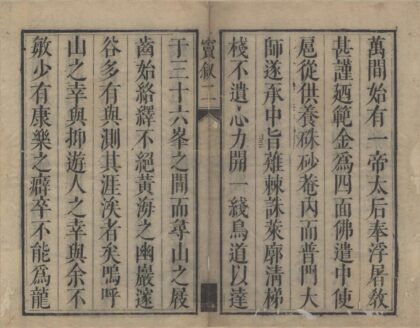 萬間始有一帝太后奉浮屠敎
甚謹廼範金爲四面佛遣中使
扈從供養硃砂菴內而普門大
師遂承中旨薙棘誅萊廓淸梯
棧不遺心力開一綫鳥道以達
寳敘二
于三十六峯之間而尋山之屐
齒始絡繹不絕黃海之幽巖邃
谷多有與測其涯涘者矣嗚呼
山之幸與抑遊人之幸與余不
敏少有康樂之癖卒不能爲龍